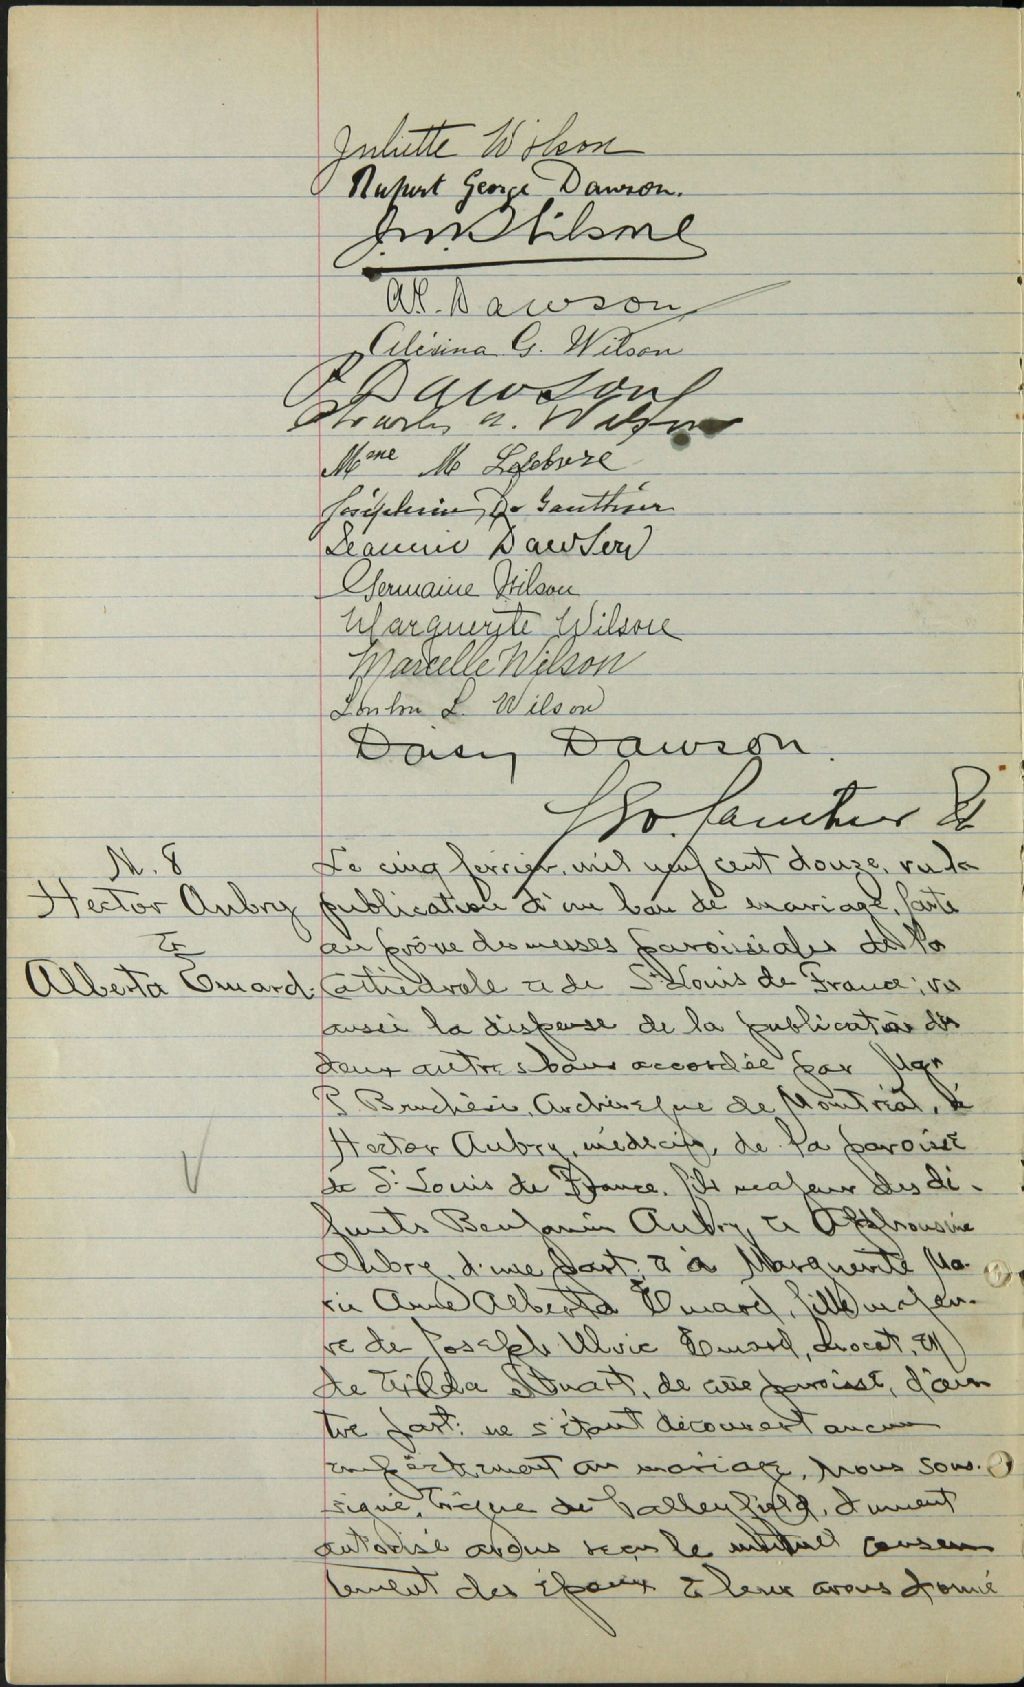 Juliette Wilson
Rupert George Dawson.
J. M. Wilson
A. P. Dawson
Alexina G. Wilson
P. Dawson
Charles A. Wilson
Mme M Lefebvre
Joséphine D. Gauthier
Jeanne Dawson
Germaine Wilson
Marguerite Wilson
Marcelle Wilson
L. Wilson
Daisy Dawson.
Geo. Gauthier
N. 8
Hector Aubry
&
Alberta Émard.
Le cinq février, mil neuf cent douze, vu la
publication d'un ban de mariage, faite
au prône des messes paroissiales de la
Cathédrale & de St Louis de France; vu
aussi la dispense de la publication des
deux autres bans accordée par Mgr
P Bruchési, Archevêque de Montréal, à
Hector Aubry, médecin, de la paroisse
de St Louis de France, fils majeur des dé-
funts Benjamin Aubry & Alphonsine
Aubry, d'une part; & à Marguerite Ma-
rie Anne Alberta Émard, fille majeu-
re de Joseph Ulric Émard, avocat, et
de Tilda Stuart, de cette paroisse, d'au
tre part: ne s'étant découvert aucun
empêchement au mariage, Nous sous-
signé, Évêque de Valleyfield, dûment
autorisé avons reçu le mutuel consen
tement des époux & leur avons donné